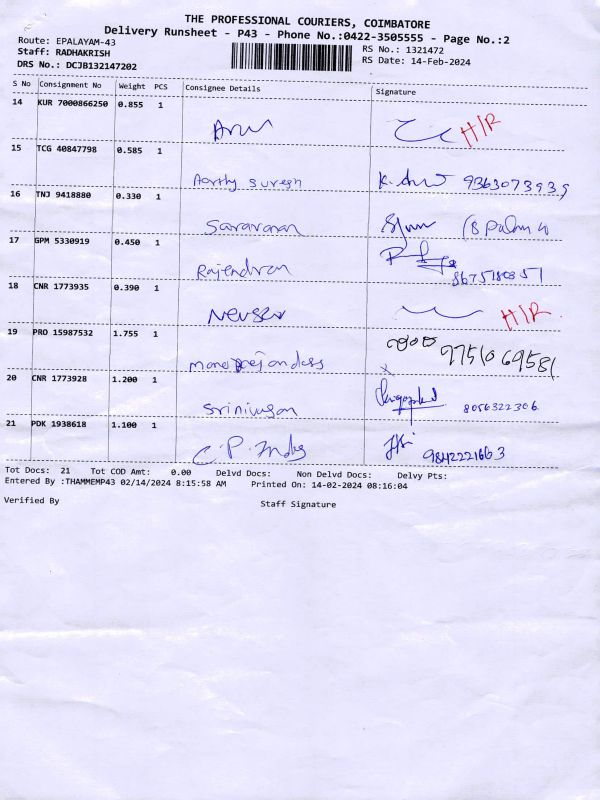 THE PROFESSIONAL COURIERS, COIMBATORE
Delivery Runsheet - P43 - Phone No.:0422-3505555 - Page No.:2
Route: EPALAYAM-43
Staff: RADHAKRISH
DRS No.: DCJB132147202
RS No.: 1321472
RS Date: 14-Feb-2024
S No Consignment No Weight PCS Consignee Details Signature
14 KUR 7000866250 0.855 1
Arun H/R
15 TCG 40847798 0.585 1
Aarthy suresh 9363073939
16 TNJ 9418880 0.330 1
Saravanan
17 GPM 5330919 0.450 1
Rajendran 8675180851
18 CNR 1773935 0.390 1
H/R
19 PRO 15987532 1.755 1
9751069581
20 CNR 1773928 1.200 1
Srinivasan 8056322306
21 PDK 1938618 1.100 1
C.P. 9842221663
Tot Docs: 21 Tot COD Amt: 0.00 Delvd Docs: Non Delvd Docs: Delvy Pts:
Entered By :THAMMEMP43 02/14/2024 8:15:58 AM Printed On: 14-02-2024 08:16:04
Verified By Staff Signature